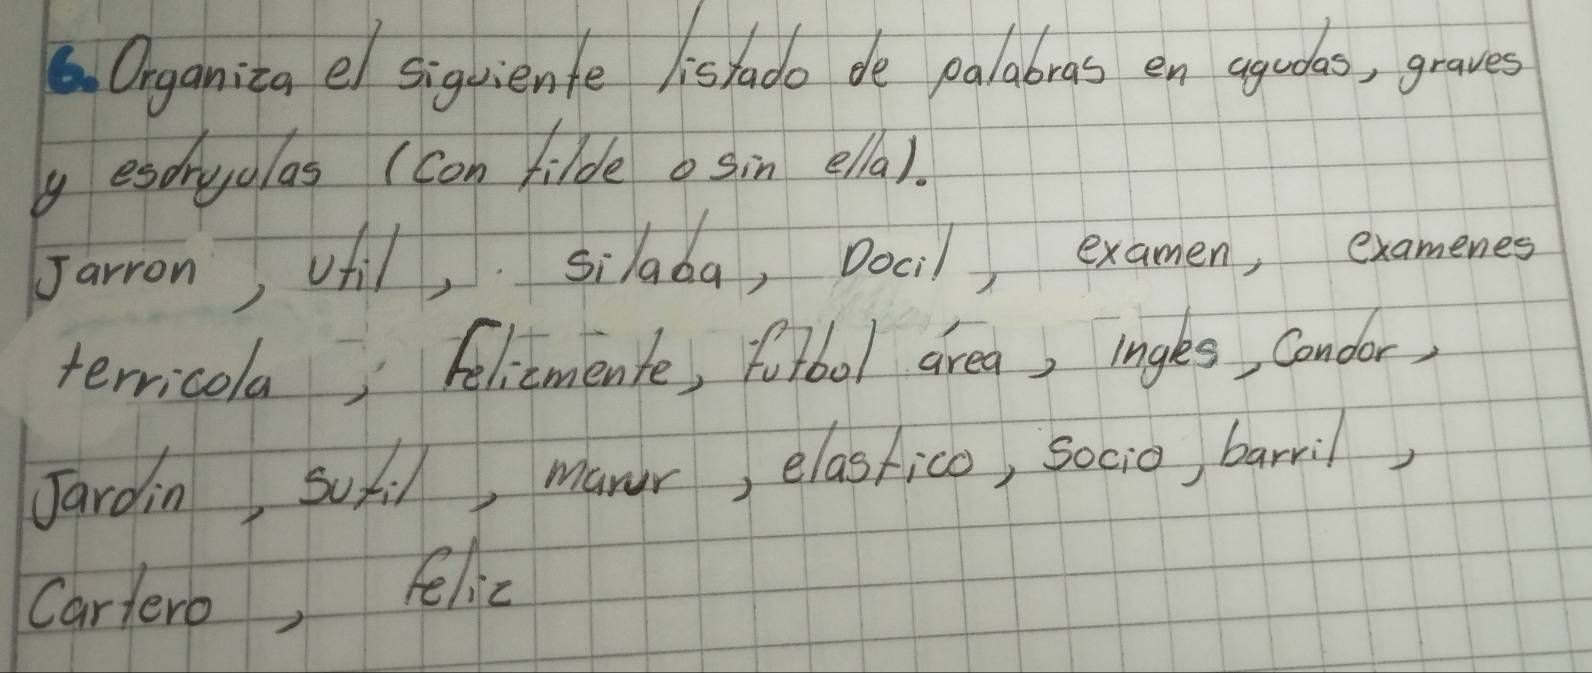 6. Organiza el siguiente listado de palabras en agudas, graves
y esdrujulas (Con tilde o sin ella).
Jarron, util, silaba, Docil, examen, examenes
terricola, felizmente, futbol área, ingles, Condor,
Jardin, sutil, , elastico, socio, barril,
Cartero, feliz